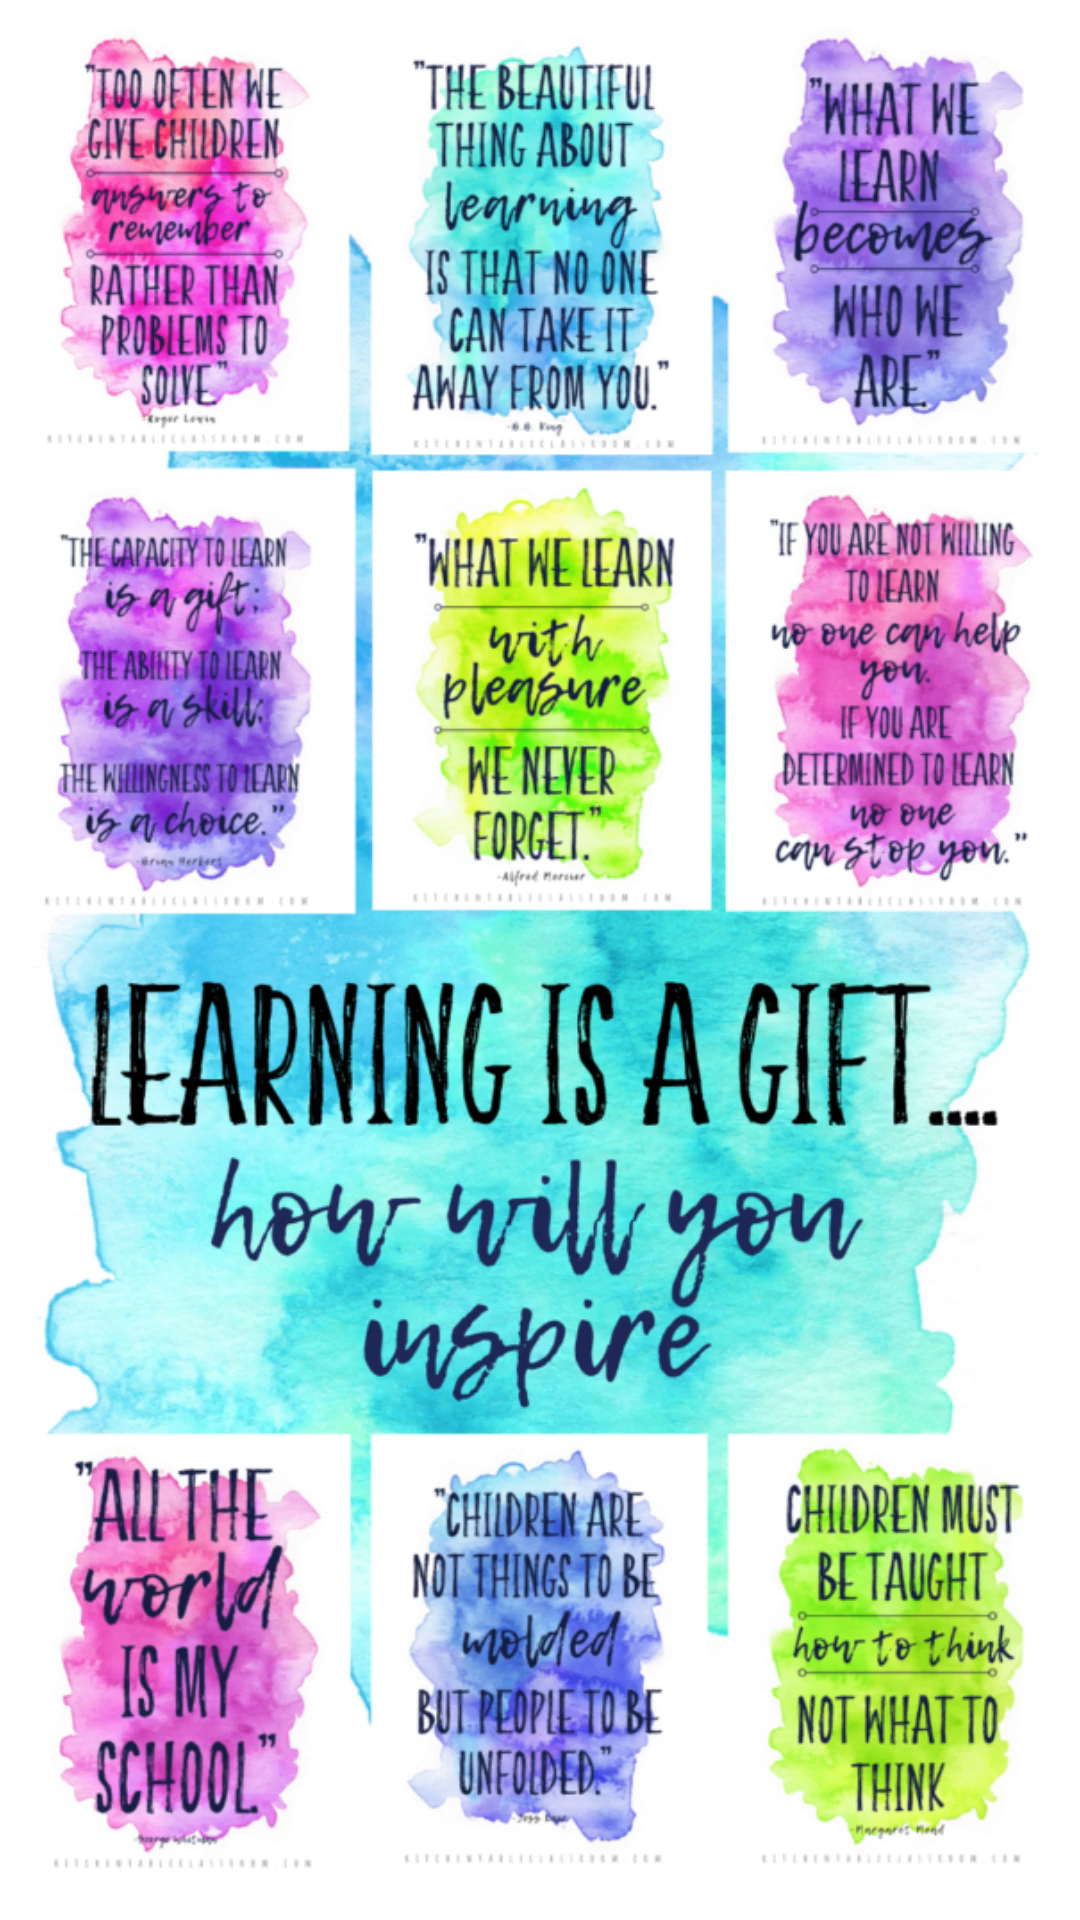 "TOO OFTEN WE
GIVE CHILDREN
answers to
remember
RATHER THAN
PROBLEMS TO
SOLVE"
-Roger Lewin
KITCHENTABLECLASSROOM.COM
"THE BEAUTIFUL
THING ABOUT
learning
IS THAT NO ONE
CAN TAKE IT
AWAY FROM YOU."
-B.B. King
KITCHENTABLECLASSROOM.COM
"WHAT WE
LEARN
becomes
WHO WE
ARE."
KITCHENTABLECLASSROOM.COM
"THE CAPACITY TO LEARN
is a gift;
THE ABILITY TO LEARN
is a skill;
THE WILLINGNESS TO LEARN
is a choice."
-Brian Herbert
KITCHENTABLECLASSROOM.COM
"WHAT WE LEARN
with
pleasure
WE NEVER
FORGET."
-Alfred Mercier
KITCHENTABLECLASSROOM.COM
"IF YOU ARE NOT WILLING
TO LEARN
no one can help
you.
IF YOU ARE
DETERMINED TO LEARN
no one
can stop you."
KITCHENTABLECLASSROOM.COM
LEARNING IS A GIFT....
how will you
inspire
"ALL THE
world
IS MY
SCHOOL."
-George Whitman
KITCHENTABLECLASSROOM.COM
"CHILDREN ARE
NOT THINGS TO BE
molded
BUT PEOPLE TO BE
UNFOLDED."
KITCHENTABLECLASSROOM.COM
CHILDREN MUST
BE TAUGHT
how to think
NOT WHAT TO
THINK
-Margaret Mead
KITCHENTABLECLASSROOM.COM